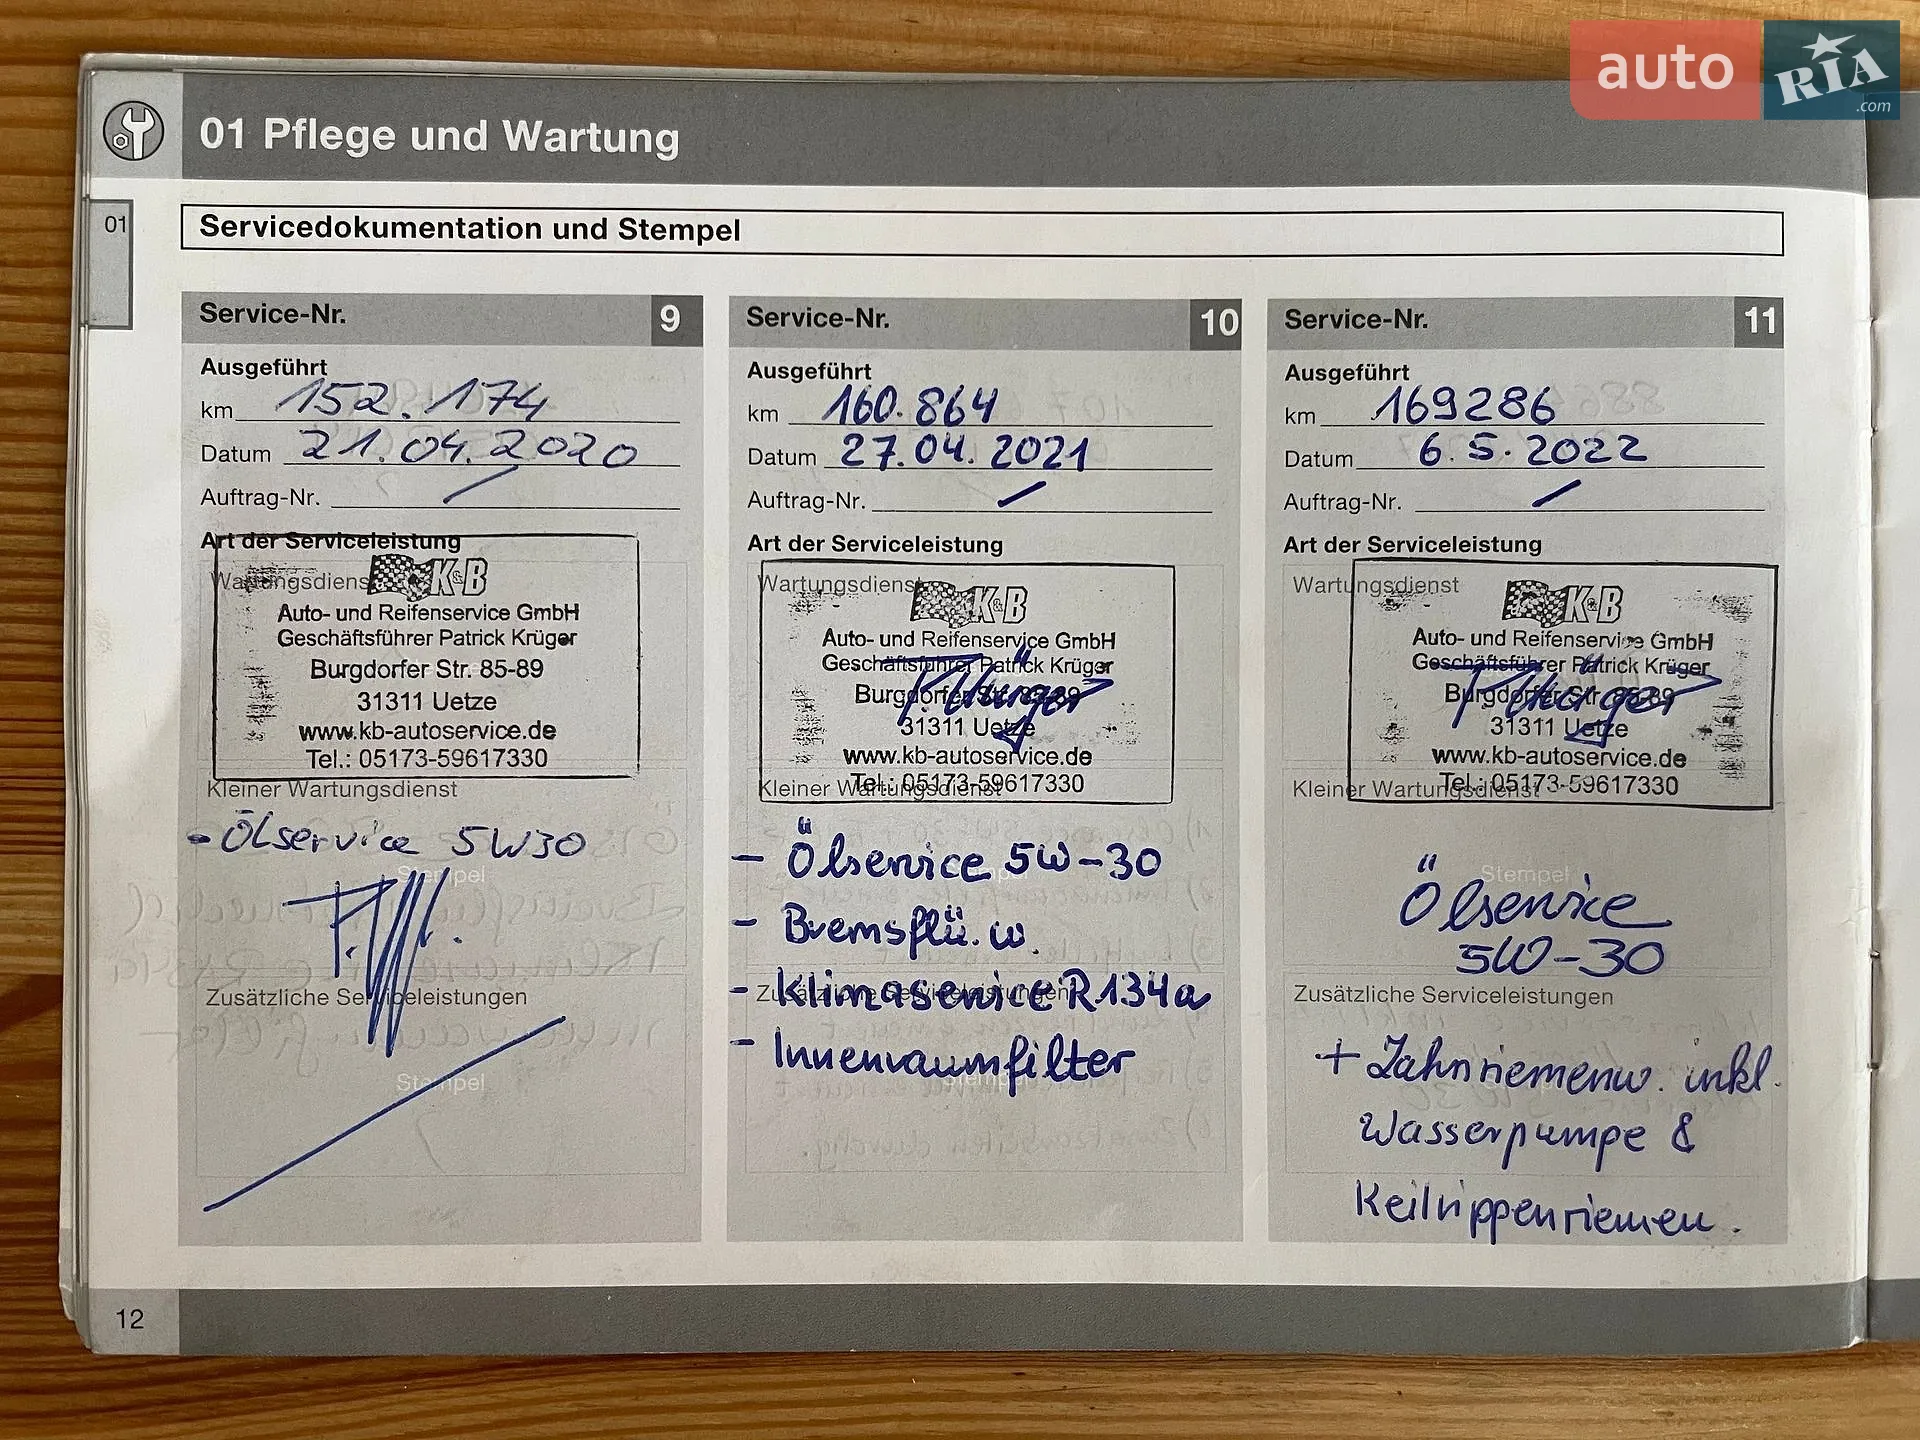 auto RIA .com
01 Pflege und Wartung
01
Servicedokumentation und Stempel
Service-Nr. 9
Ausgeführt
km 152.174
Datum 21.04.2020
Auftrag-Nr. /
Art der Serviceleistung
Wartungsdienst
K&B
Auto- und Reifenservice GmbH
Geschäftsführer Patrick Krüger
Burgdorfer Str. 85-89
31311 Uetze
www.kb-autoservice.de
Tel.: 05173-59617330
Kleiner Wartungsdienst
- Ölservice 5W30
Stempel
Zusätzliche Serviceleistungen
Stempel
Service-Nr. 10
Ausgeführt
km 160.864
Datum 27.04.2021
Auftrag-Nr. /
Art der Serviceleistung
Wartungsdienst
K&B
Auto- und Reifenservice GmbH
Geschäftsführer Patrick Krüger
Burgdorfer Str. 85-89
31311 Uetze
www.kb-autoservice.de
Tel.: 05173-59617330
Kleiner Wartungsdienst
- Ölservice 5W-30
- Bremsflü. w.
Zusätzliche Serviceleistungen
- Klimaservice R134a
- Innenraumfilter
Service-Nr. 11
Ausgeführt
km 169286
Datum 6.5.2022
Auftrag-Nr. /
Art der Serviceleistung
Wartungsdienst
K&B
Auto- und Reifenservice GmbH
Geschäftsführer Patrick Krüger
Burgdorfer Str. 85-89
31311 Uetze
www.kb-autoservice.de
Tel.: 05173-59617330
Kleiner Wartungsdienst
Stempel
Ölservice
5W-30
Zusätzliche Serviceleistungen
+ Zahnriemenw. inkl.
Wasserpumpe &
Keilrippenriemen.
12